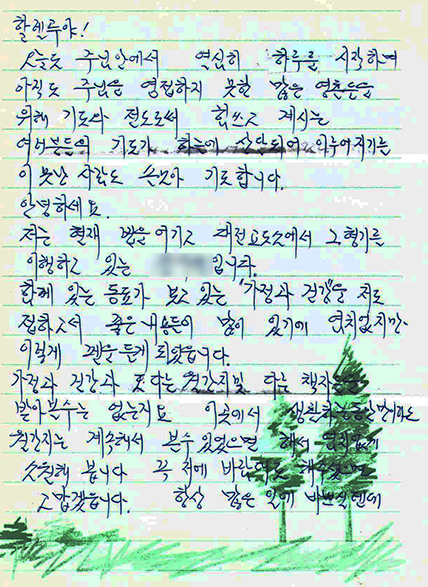 할렐루야!
오늘도 주님안에서 열심히 하루를 시작하며
아직도 주님을 영접하지 못한 많은 영혼들을
위해 기도와 전도로써 힘쓰고 계시는
여러분들의 기도가 하늘에 상달되어 이루어지기를
이 못난 사람도 손모아 기도합니다.
안녕하세요.
저는 현재 법을 어기고 대전교도소에서 그 형기를
이행하고 있는 입니다.
함께 있는 동료가 보고 있는 '가정과 건강'을 저도
접하고서 좋은 내용들이 많이 있기에 염치없지만
이렇게 펜을 들게 되었습니다.
가정과 건강과 또다른 월간지및 다른 책자
받아볼수는 없는지요 이곳에서 생활하는동안만이라도
월간지는 계속해서 볼수 있었으면 해서 염치없게
소원해 봅니다 꼭
고맙겠습니다. 항상 많은 일에 바쁘실텐데